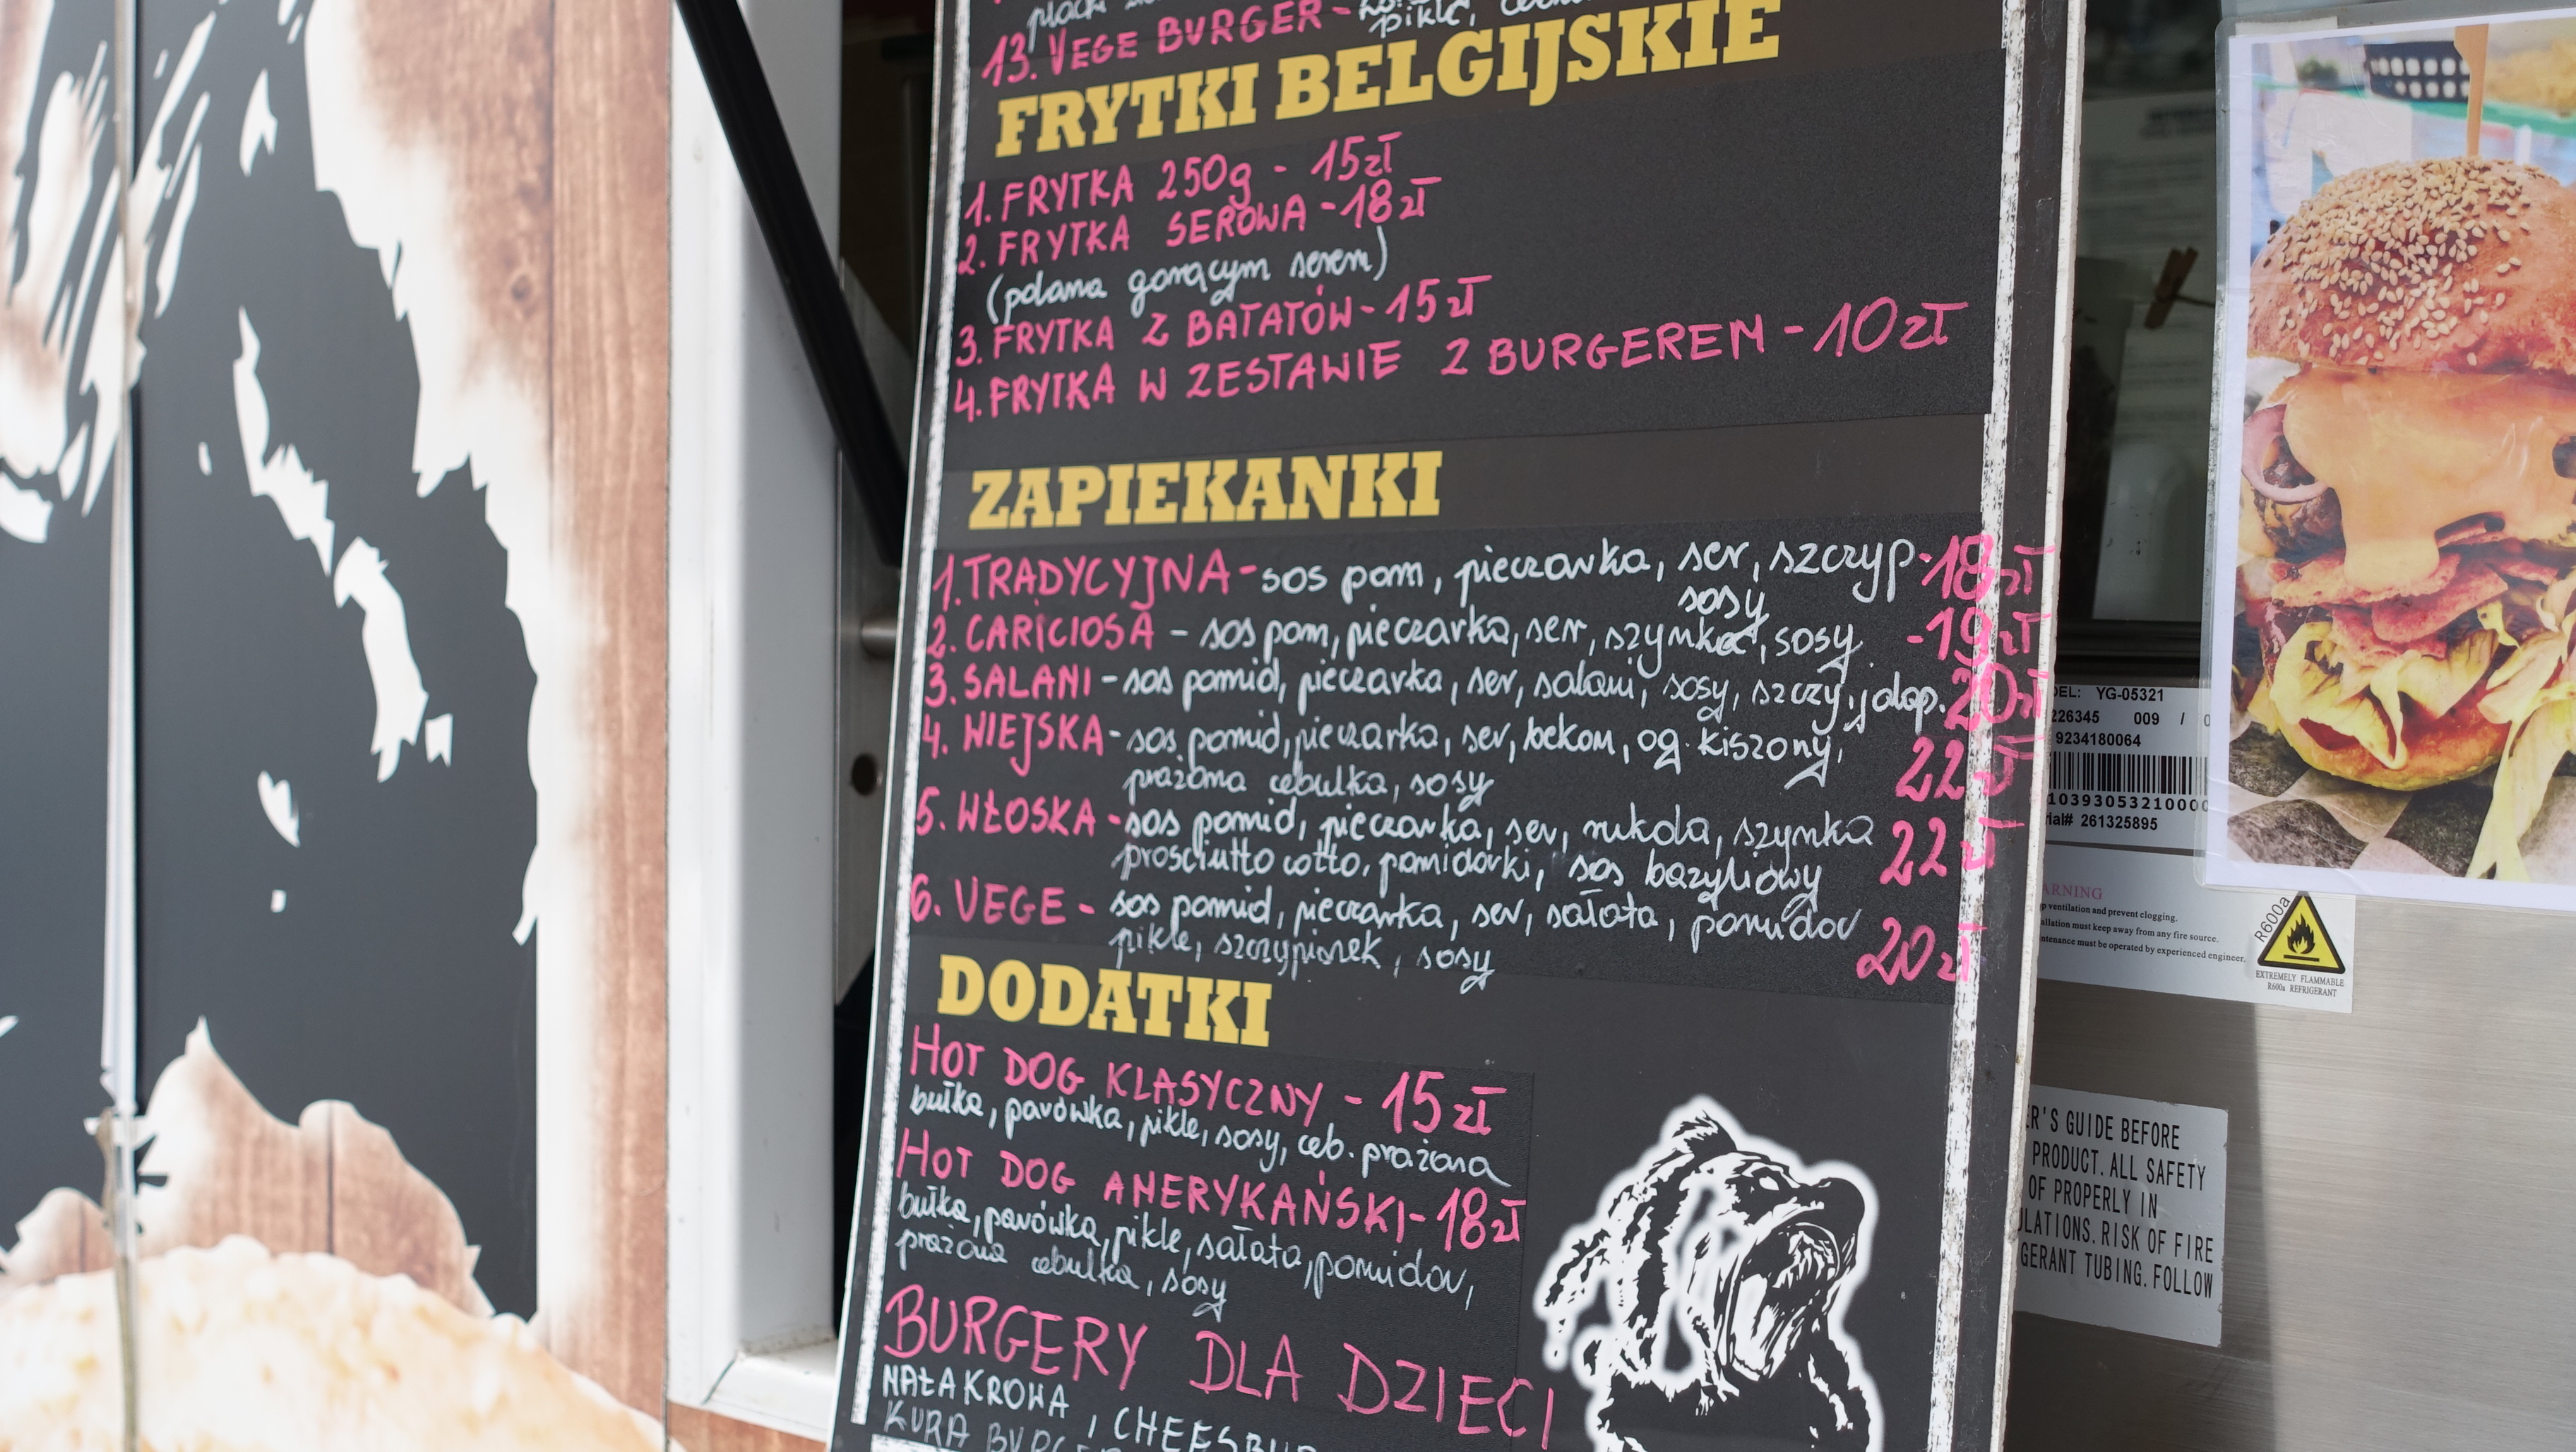 13. VEGE BURGER -
pikle,
FRYTKI BELGIJSKIE
1. FRYTKA 250g - 15zł
2. FRYTKA SEROWA - 18zł
(polana gorącym serem)
3. FRYTKA Z BATATÓW - 15zł
4. FRYTKA W ZESTAWIE Z BURGEREM - 10zł
ZAPIEKANKI
1. TRADYCYJNA - sos pom, pieczarka, ser, szczyp - 18zł
sosy
2. CARICIOSA - sos pom, pieczarka, ser, szynka, sosy - 19zł
3. SALAMI - sos pomid, pieczarka, ser, salami, sosy, szczy, jalap. 20zł
4. WIEJSKA - sos pomid, pieczarka, ser, bekon, og. kiszony,
prażona cebulka, sosy 22zł
5. WŁOSKA - sos pomid, pieczarka, ser, rukola, szynka
prosciutto cotto, pomidorki, sos bazyliowy 22zł
6. VEGE - sos pomid, pieczarka, ser, sałata, pomidor
pikle, szczypiorek, sosy 20zł
DODATKI
HOT DOG KLASYCZNY - 15zł
bułka, parówka, pikle, sosy, ceb. prażona
HOT DOG AMERYKAŃSKI - 18zł
bułka, parówka, pikle, sałata, pomidor,
prażona cebulka, sosy
BURGERY DLA DZIECI
MAŁA KROWA, CHEESBUR
KURA BURGER
DEL: YG-05321
226345 009 / 0
9234180064
10393053210000
rial# 261325895
ARNING
p ventilation and prevent clogging.
allation must keep away from any fire source.
ntenance must be operated by experienced engineer.
R600a
EXTREMELY FLAMMABLE
R600a REFRIGERANT
ER'S GUIDE BEFORE
PRODUCT. ALL SAFETY
OF PROPERLY IN
ULATIONS. RISK OF FIRE
GERANT TUBING. FOLLOW